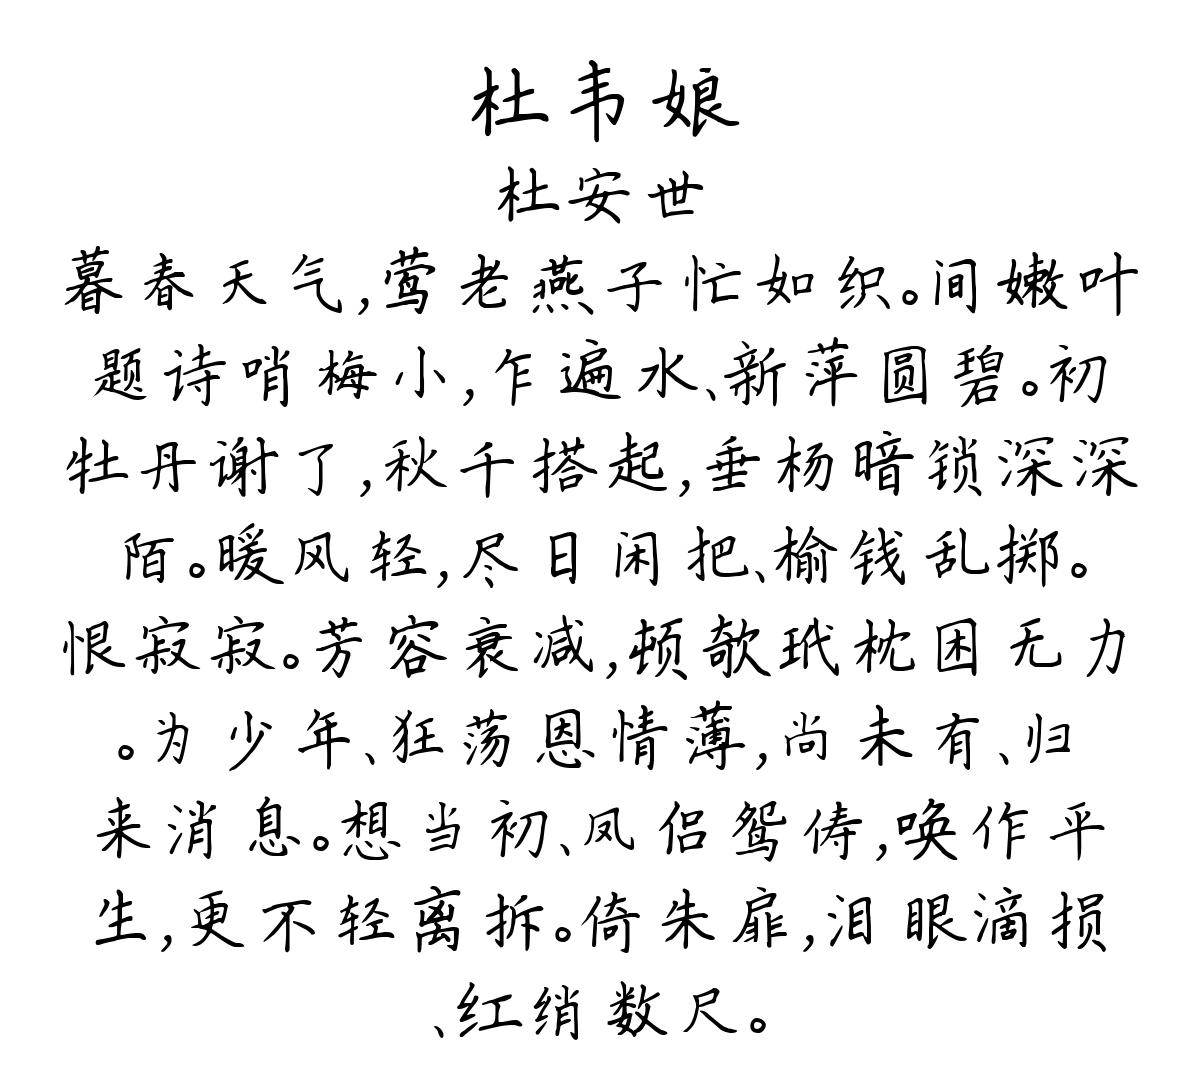 杜韦娘
杜安世
暮春天气,莺老燕子忙如织。间嫩叶
题诗哨梅小,乍遍水、新萍圆碧。初
牡丹谢了,秋千搭起,垂杨暗锁深深
陌。暖风轻,尽日闲把、榆钱乱掷。
恨寂寂。芳容衰减,顿欹玳枕困无力
。为少年、狂荡恩情薄,尚未有、归
来消息。想当初、凤侣鸳俦,唤作平
生,更不轻离拆。倚朱扉,泪眼滴损
、红绡数尺。